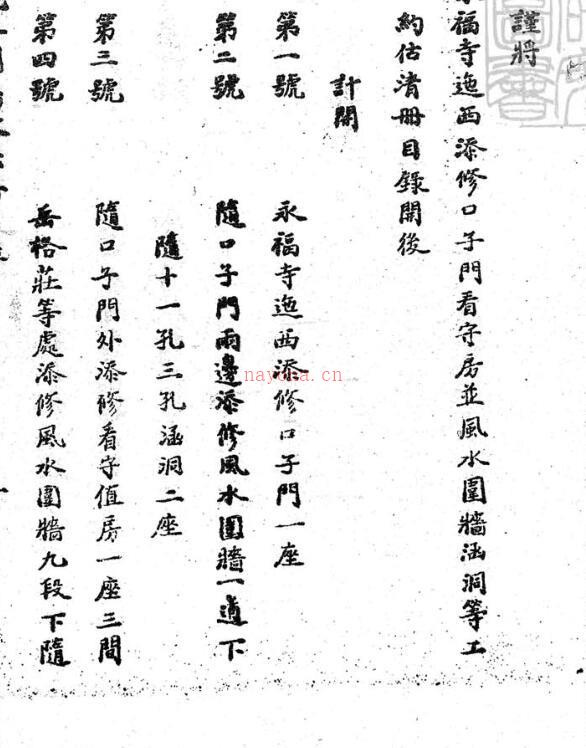 謹將
永福寺迤西添修口子門看守房並風水圍牆涵洞等工
約估清冊目錄開後
計開
第一號 永福寺迤西添修口子門一座
第二號 隨口子門兩邊添修風水圍牆一道下
隨十一孔三孔涵洞二座
第三號 隨口子門外添修看守值房一座三間
第四號 岳格莊等處添修風水圍牆九段下隨
nayona.cn